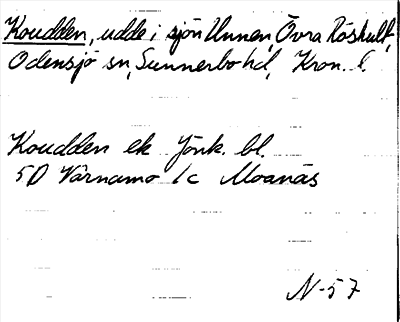 Koudden, udde i sjön Unnen, Övra Röshult,
Odensjö sn, Sunnerbo hd, Kron. l.
Koudden ek Jönk. bl.
5D Värnamo 1c Moanäs
N-57